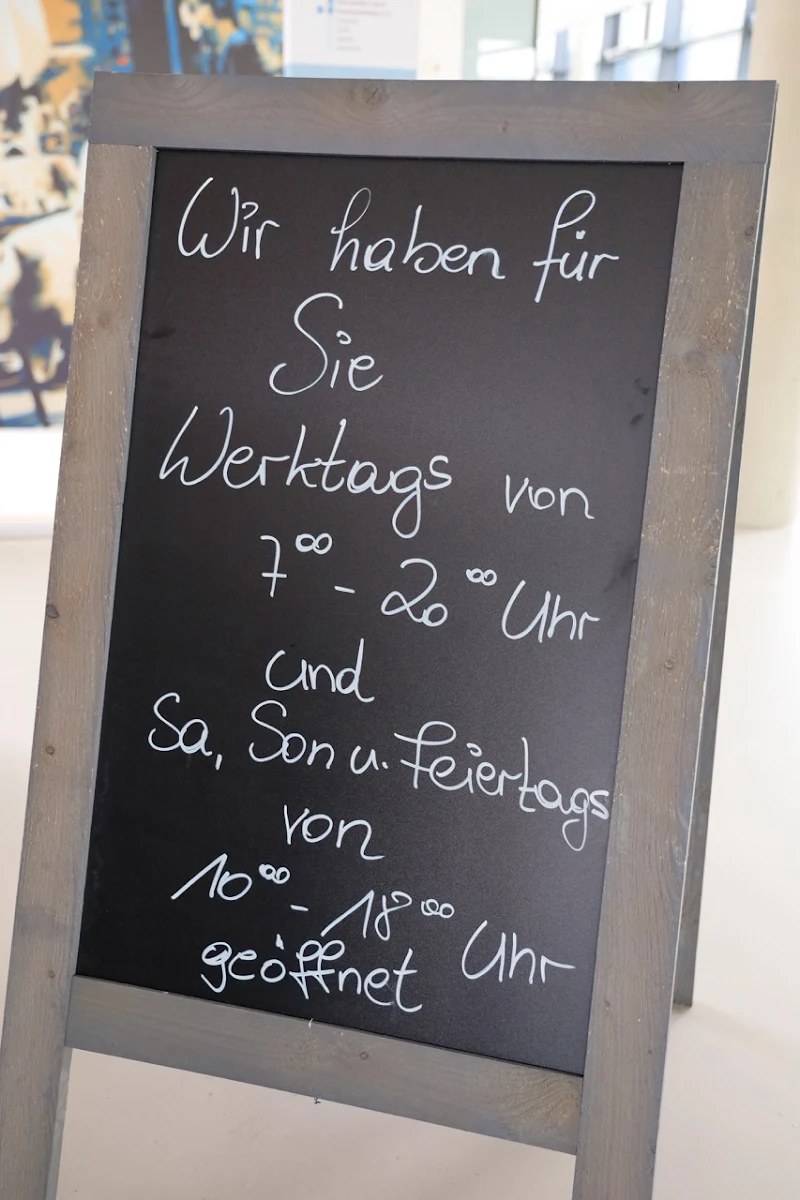 Wir haben für
Sie
Werktags von
7⁰⁰ - 20⁰⁰ Uhr
und
Sa, Son u. Feiertags
von
10⁰⁰ - 18⁰⁰ Uhr
geöffnet